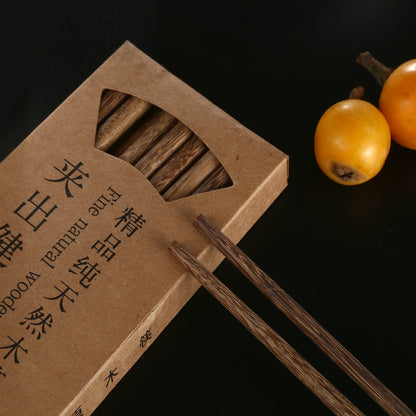 精品纯天然木
Fine natural wooden
夹出健
木筷